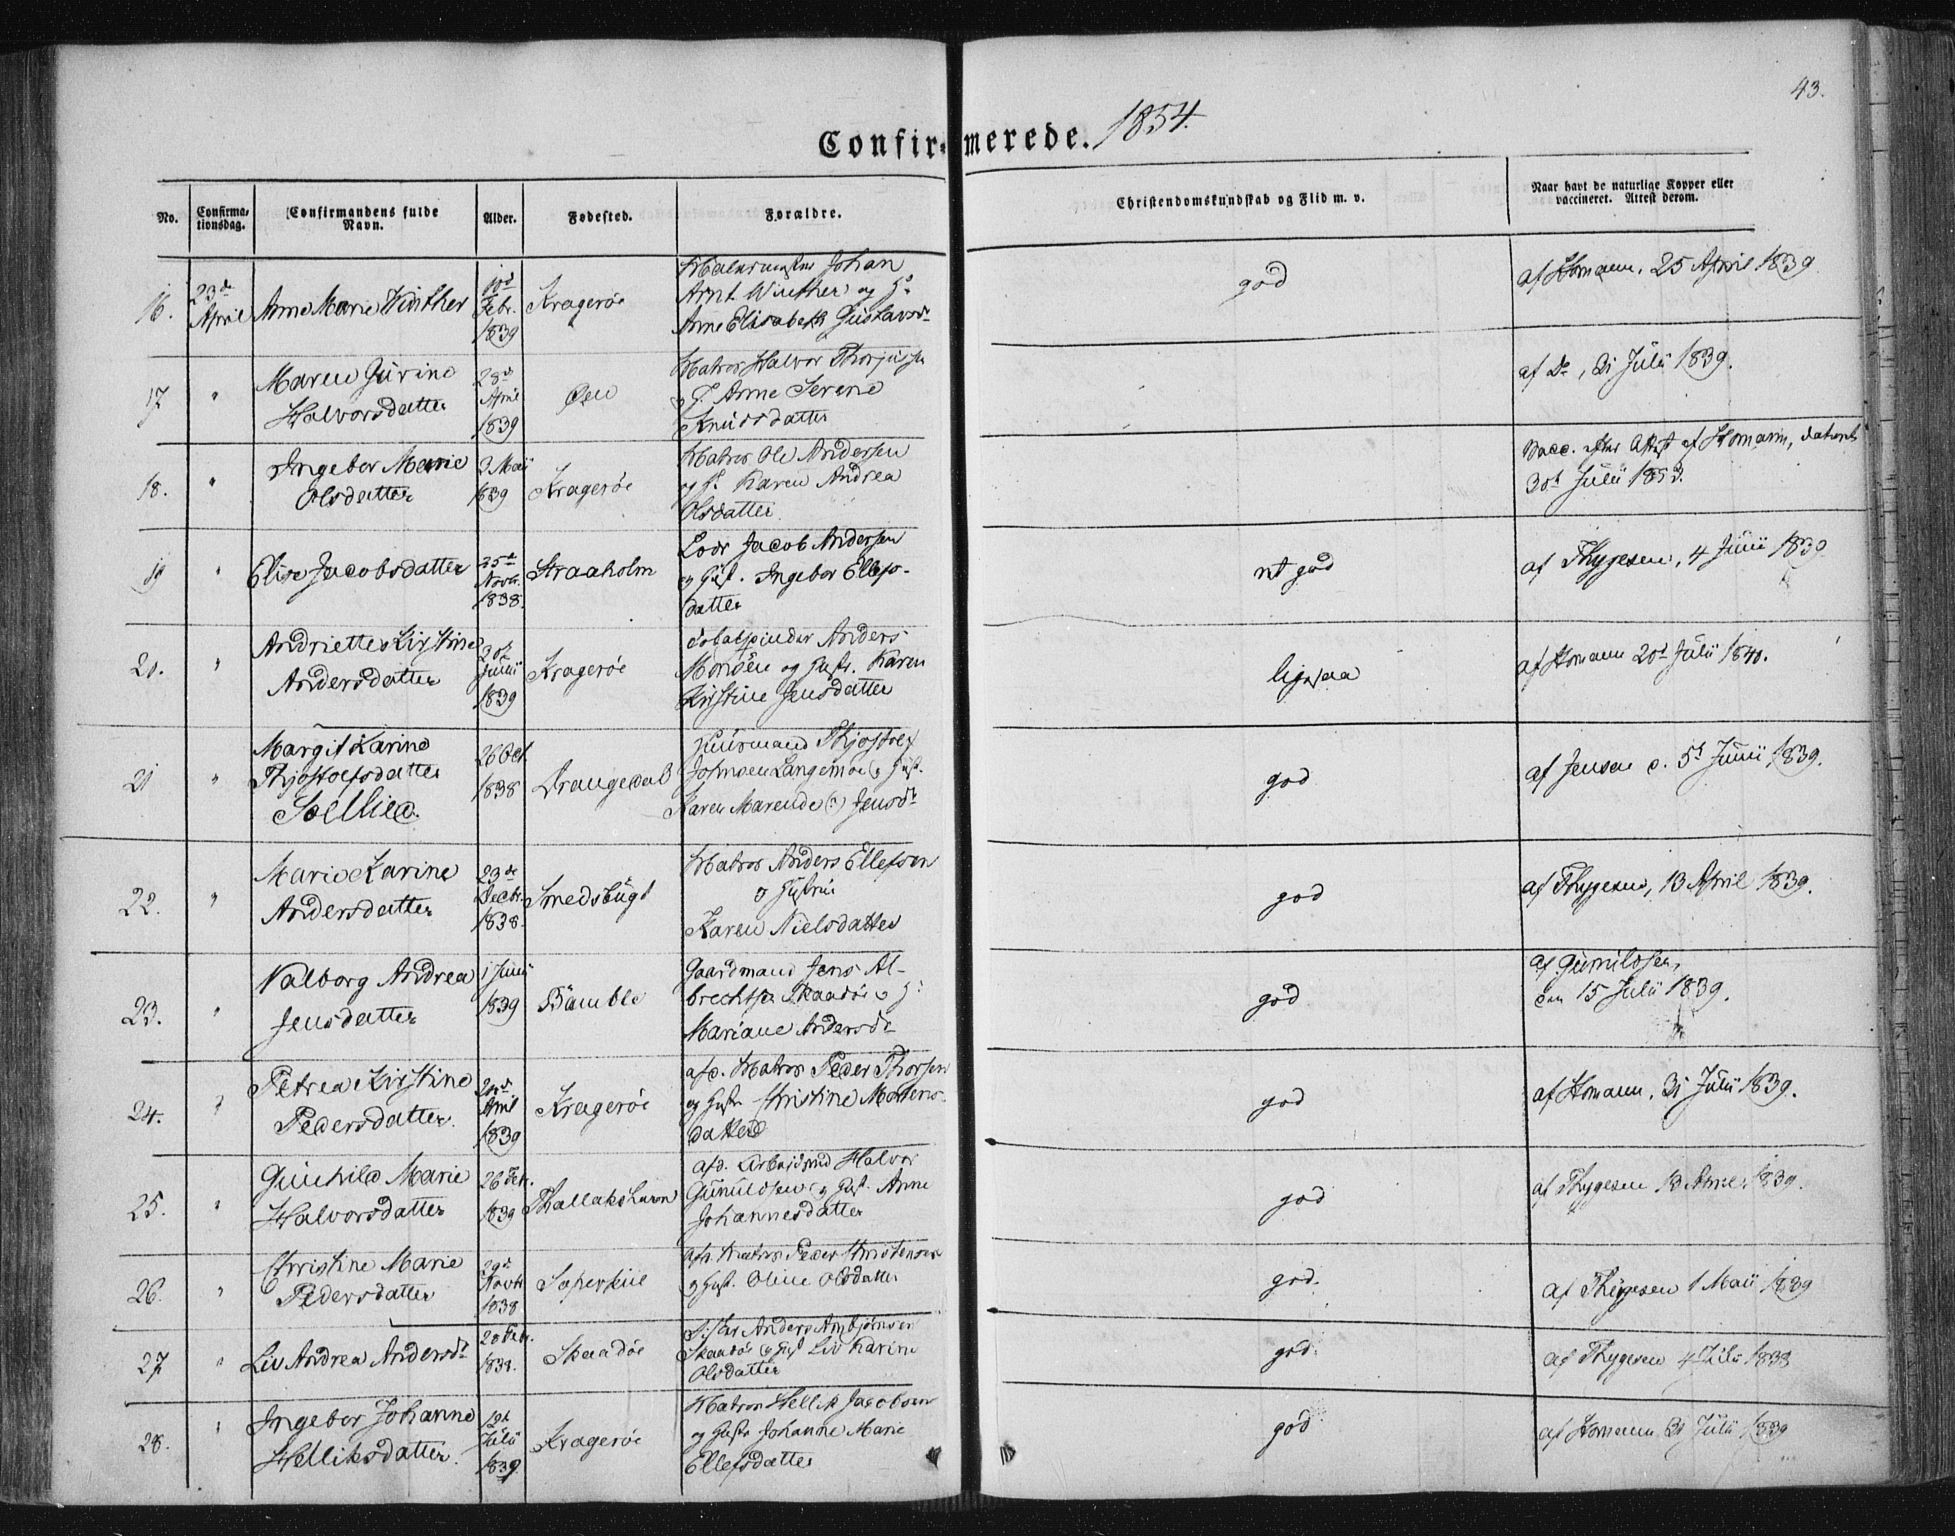 43.
Confirmerede. 1854.
No.
Confirma-
tionsdag.
Confirmandens fulde
Navn.
Alder.
Fødested.
Forældre.
Christendomskundskab og Flid m. v.
Naar havt de naturlige Kopper eller
vaccineret. Attest derom.
16.
23de
April
Anne Marie Winther
10d
Febr.
1839
Kragerøe
Johan
Arnt Winther og H.
Anne Elisabeth Gustavsdr
god
af Homann, 25 April 1839
17
"
Maren Gurine
Halvorsdatter
28d
April
1839
Øen
Matros Halvor
og H. Anne Serene
Knudsdatter
af Do, 31 Julii 1839.
18.
"
Ingebor Marie
Olsdatter
2 Mai
1839
Kragerøe
Matros Ole Andersen
og H. Karen Andrea
Olsdatter
Vacc. efter Attest af Homann, dateret
30t Julii 1853.
19
"
Elise Jacobsdatter
25d
Novbr.
1838.
Straaholm
Lods Jacob Andersen
og Hust. Ingebor Ellefs-
datter
ret god
af Thygesen, 4 Junii 1839
20.
"
Andriette Kirstine
Andersdatter
Junii
1839
Kragerøe
Tobaspinder Anders
Monsen og Hustr. Karen
Kirstine Jensdatter
ligesaa
af Homann 20d Julii 1840.
21
"
Margit Karine
Thjostolfsdatter
Soellie
26 Oct.
1838
Drangedal
Huusmand Thjostolf
Johnsen Langemoe og Hust.
Karen Marende (?) Jensdr
god
af Jensen d. 5t Junii 1839.
22.
"
Marie Karine
Andersdatter
23de
Decbr.
1838.
Smedsbugt
Matros Anders Ellefsen
og Hustrue
Karen Nielsdatter
god
af Thygesen, 13 April 1839.
23.
"
Valborg Andrea
Jensdatter
1 Junii
1839
Bamble
Gaardmand Jens Al-
brechtsen Skaadøe og H.
Mariane Andersdr
god
af Gunnildsen,
den 15 Julii 1839.
24.
"
Petrea Kirstine
Pedersdatter.
April
1839
Kragerøe
afd. Matros Peder Thorsen
og Hustr. Christine Mortens-
datter
god
af Homann, 31 Julii 1839.
25.
"
Gunhild Marie
Halvorsdatter
26 Febr.
1839
Thallakshavn
afd. Arbeidsmd Halvor
Gunuldsen og Hust. Anne
Johannesdatter
god
af Thygesen 13 April 1839.
26.
"
Christine Marie
Pedersdatter
29d
Novbr
1838
afd. Matros Peder Christensen
og Hust. Oline Olsdatter
god.
af Thygesen 1 Maii 1839
27
"
Liv Andrea Andersdr
20 Febr.
Skaadøe
Fisker Anders Arnbjørnsen
Skaadøe og Hust Liv Karine
Olsdatter
god.
af Thygesen 4 Julii 1839
28.
"
Ingebor Johanne
Helliksdatter.
19d
Julii
1839.
Kragerøe
Matros Hellik Jacobsen
og Hustr Johanne Marie
Ellefsdatter
god
af Homann 31 Julii 1839